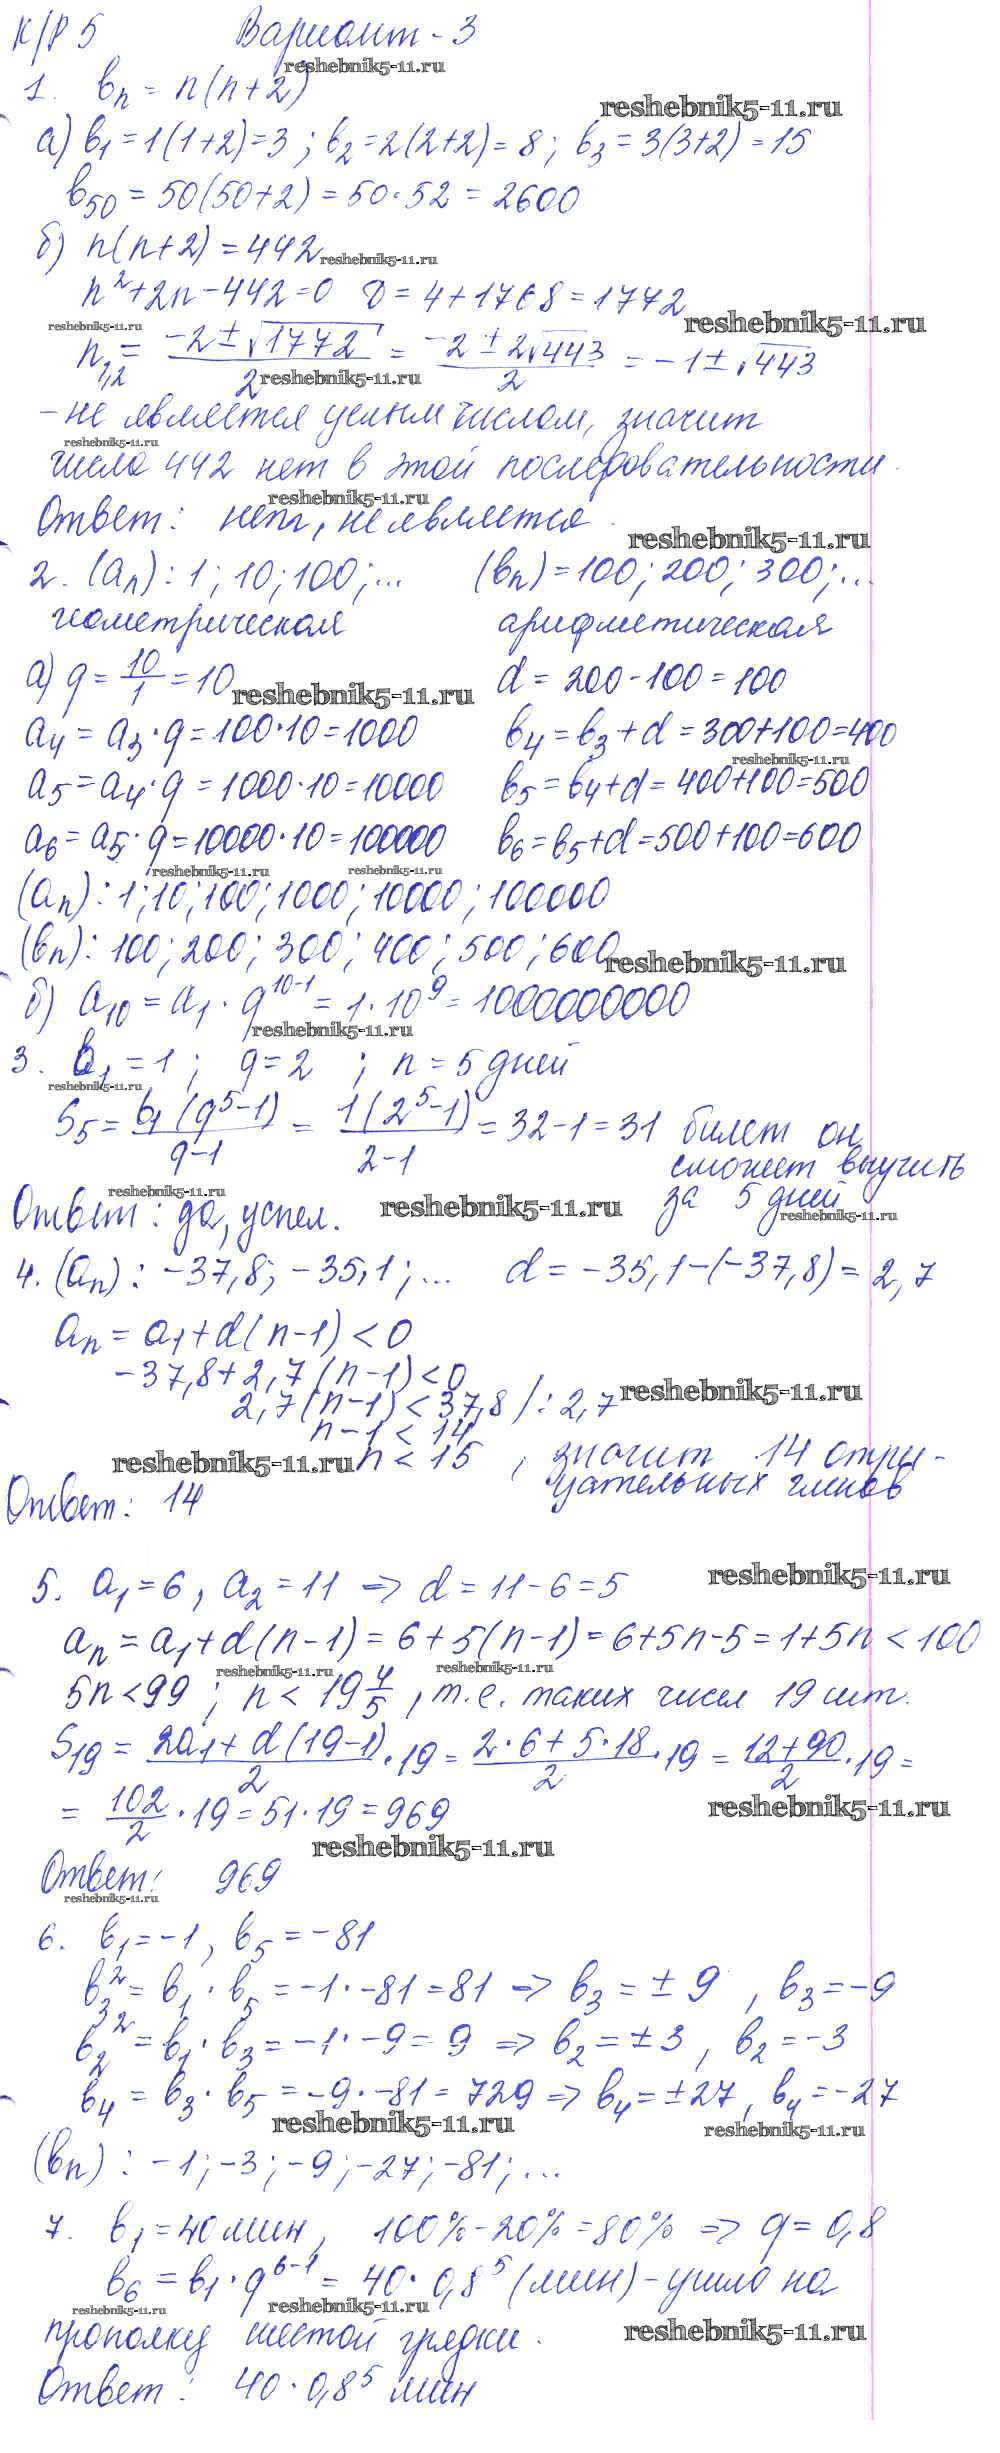 К/Р 5 Вариант - 3
reshebnik5-11.ru
1. bn = n(n+2)
reshebnik5-11.ru
а) b1 = 1(1+2) = 3 ; b2 = 2(2+2) = 8 ; b3 = 3(3+2) = 15
b50 = 50(50+2) = 50·52 = 2600
б) n(n+2) = 442
reshebnik5-11.ru
n²+2n-442=0 D = 4+1768 = 1772
reshebnik5-11.ru
reshebnik5-11.ru
n1,2 = (-2±√1772)/2 = (-2±2√443)/2 = -1±√443
reshebnik5-11.ru
- не является целым числом, значит
reshebnik5-11.ru
число 442 нет в этой последовательности.
reshebnik5-11.ru
Ответ: нет, не является.
reshebnik5-11.ru
2. (an): 1; 10; 100; ... (bn) = 100; 200; 300; ...
геометрическая арифметическая
а) q = 10/1 = 10 d = 200-100 = 100
reshebnik5-11.ru
a4 = a3·q = 100·10 = 1000 b4 = b3+d = 300+100=400
reshebnik5-11.ru
a5 = a4·q = 1000·10 = 10000 b5 = b4+d = 400+100=500
a6 = a5·q = 10000·10 = 100000 b6 = b5+d = 500+100=600
reshebnik5-11.ru reshebnik5-11.ru
(an): 1; 10; 100; 1000; 10000; 100000
(bn): 100; 200; 300; 400; 500; 600
reshebnik5-11.ru
б) a10 = a1·q^10-1 = 1·10^9 = 1000000000
reshebnik5-11.ru
3. b1 = 1 ; q = 2 ; n = 5 дней
reshebnik5-11.ru
S5 = b1(q^5-1)/(q-1) = 1(2^5-1)/(2-1) = 32-1 = 31 билет он
сможет выучить
за 5 дней
reshebnik5-11.ru
Ответ: да, успел.
reshebnik5-11.ru
reshebnik5-11.ru
4. (an): -37,8; -35,1; ... d = -35,1-(-37,8) = 2,7
an = a1+d(n-1) < 0
-37,8+2,7(n-1)<0
reshebnik5-11.ru
2,7(n-1) < 37,8 /: 2,7
n-1 < 14
reshebnik5-11.ru
n < 15 , значит 14 отри-
цательных членов
Ответ: 14
5. a1 = 6, a2 = 11 => d = 11-6 = 5
reshebnik5-11.ru
an = a1+d(n-1) = 6+5(n-1) = 6+5n-5 = 1+5n < 100
reshebnik5-11.ru reshebnik5-11.ru
5n < 99 ; n < 19 4/5 , т.е. таких чисел 19 шт.
S19 = (2a1+d(19-1))/2 ·19 = (2·6+5·18)/2 ·19 = (12+90)/2 ·19 =
= 102/2 ·19 = 51·19 = 969
reshebnik5-11.ru
reshebnik5-11.ru
Ответ: 969
reshebnik5-11.ru
6. b1 = -1, b5 = -81
b3² = b1·b5 = -1·-81 = 81 => b3 = ±9 , b3 = -9
b2² = b1·b3 = -1·-9 = 9 => b2 = ±3 , b2 = -3
b4 = b3·b5 = -9·-81 = 729 => b4 = ±27, b4 = -27
reshebnik5-11.ru reshebnik5-11.ru
(bn): -1; -3; -9; -27; -81; ...
7. b1 = 40 мин, 100%-20% = 80% => q = 0,8
b6 = b1·q^6-1 = 40·0,8^5 (мин) - ушло на
reshebnik5-11.ru reshebnik5-11.ru
прополку шестой грядки.
reshebnik5-11.ru
Ответ: 40·0,8^5 мин